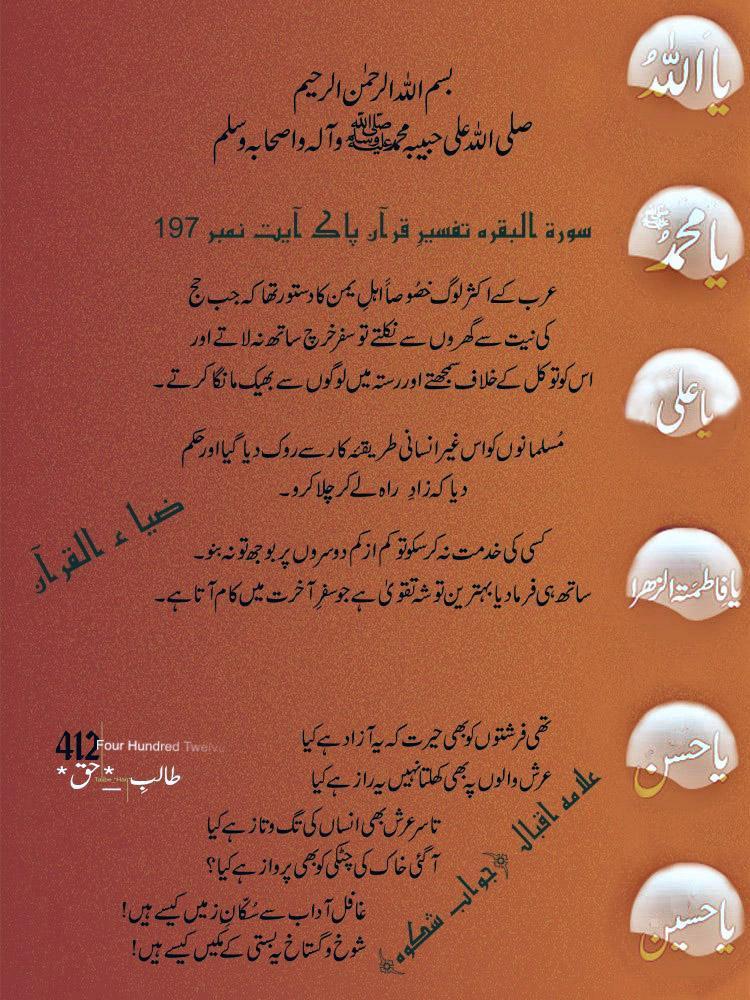 بسم اللہ الرحمٰن الرحیم
صلی اللہ علی حبیبہ محمد ﷺ وآلہ واصحابہ وسلم
سورۃ البقرہ تفسیرِ قرآن پاک آیت نمبر 197
عرب کے اکثر لوگ خصُوصاً اہلِ یمن کا دستور تھا کہ جب حج
کی نیت سے گھروں سے نکلتے تو سفر خرچ ساتھ نہ لاتے اور
اس کو توکل کے خلاف سمجھتے اور رستہ میں لوگوں سے بھیک مانگا کرتے ۔
مُسلمانوں کو اس غیر انسانی طریقئہ کار سے روک دیا گیا اور حکم
دیا کہ زادِ راہ لے کر چلا کرو ۔
کسی کی خدمت نہ کر سکو تو کم از کم دوسروں پر بوجھ تو نہ بنو ۔
ساتھ ہی فرما دیا بہترین توشہ تقویٰ ہے جو سفرِ آخرت میں کام آتا ہے ۔
ضیاء القرآن
تھی فرشتوں کو بھی حیرت کہ یہ آزاد ہے کیا
عرش والوں پہ بھی کھلتا نہیں یہ راز ہے کیا
تا سر عرش بھی انساں کی تگ و تاز ہے کیا
آ گئی خاک کی چٹکی کو بھی پرواز ہے کیا؟
غافل آداب سے سُکّانِ زمیں کیسے ہیں!
شوخ و گستاخ یہ پستی کے مکیں کیسے ہیں!
علامہ اقبال
جواب شکوہ
412 Four Hundred Twelve
طالبِ_*حق*
یا اَللہُ
یا محمدُ ﷺ
یا علی
یا فاطمَتہ الزھرا
یا حسن
یا حسین